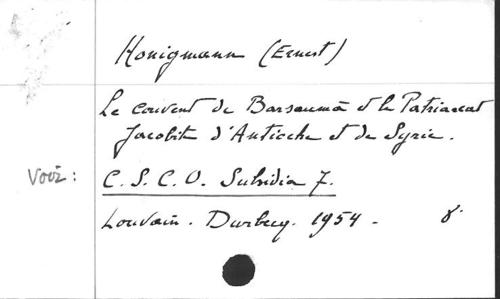 Honigmann (Ernest)
Le couvent de Barsaumā et le Patriarcat
Jacobite d'Antioche et de Syrie.
Voir: C. S. C. O. Subsidia 7.
Louvain. Durbecq. 1954. 8°